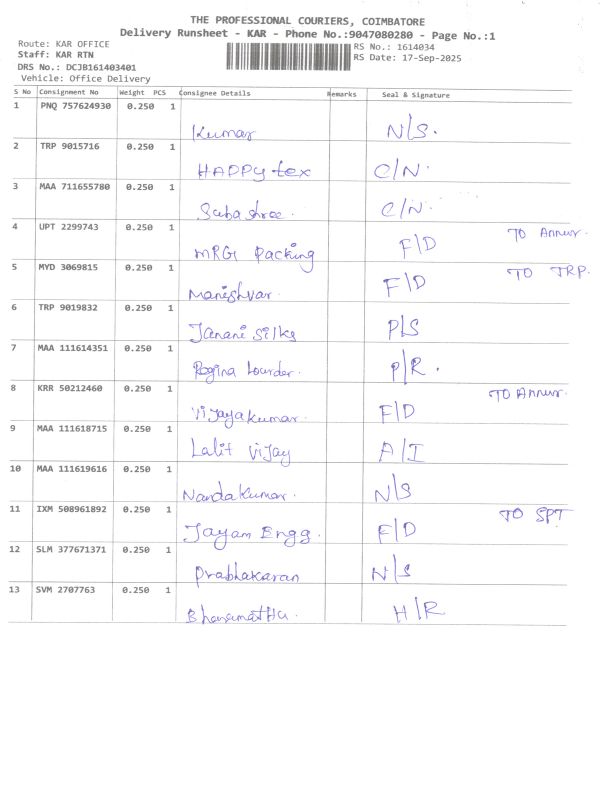 THE PROFESSIONAL COURIERS, COIMBATORE
Delivery Runsheet - KAR - Phone No.:9047080280 - Page No.:1
Route: KAR OFFICE
Staff: KAR RTN
DRS No.: DCJB161403401
Vehicle: Office Delivery
RS No.: 1614034
RS Date: 17-Sep-2025
S No Consignment No Weight PCS Consignee Details Remarks Seal & Signature
1 PNQ 757624930 0.250 1 Kumar N/S.
2 TRP 9015716 0.250 1 HAPPY tex C/N.
3 MAA 711655780 0.250 1 Suba shree. C/N.
4 UPT 2299743 0.250 1 MRG Packing F/D TO Annur.
5 MYD 3069815 0.250 1 Manishvar. F/D TO TRP.
6 TRP 9019832 0.250 1 Janani Silks P/S
7 MAA 111614351 0.250 1 Regina Lourder. P/R.
8 KRR 50212460 0.250 1 Vijayakumar. F/D TO Annur.
9 MAA 111618715 0.250 1 Lalit Vijay A/I
10 MAA 111619616 0.250 1 Nandakumar. N/S
11 IXM 508961892 0.250 1 Jayam Engg. F/D TO SPT
12 SLM 377671371 0.250 1 Prabhakaran N/S
13 SVM 2707763 0.250 1 H/R